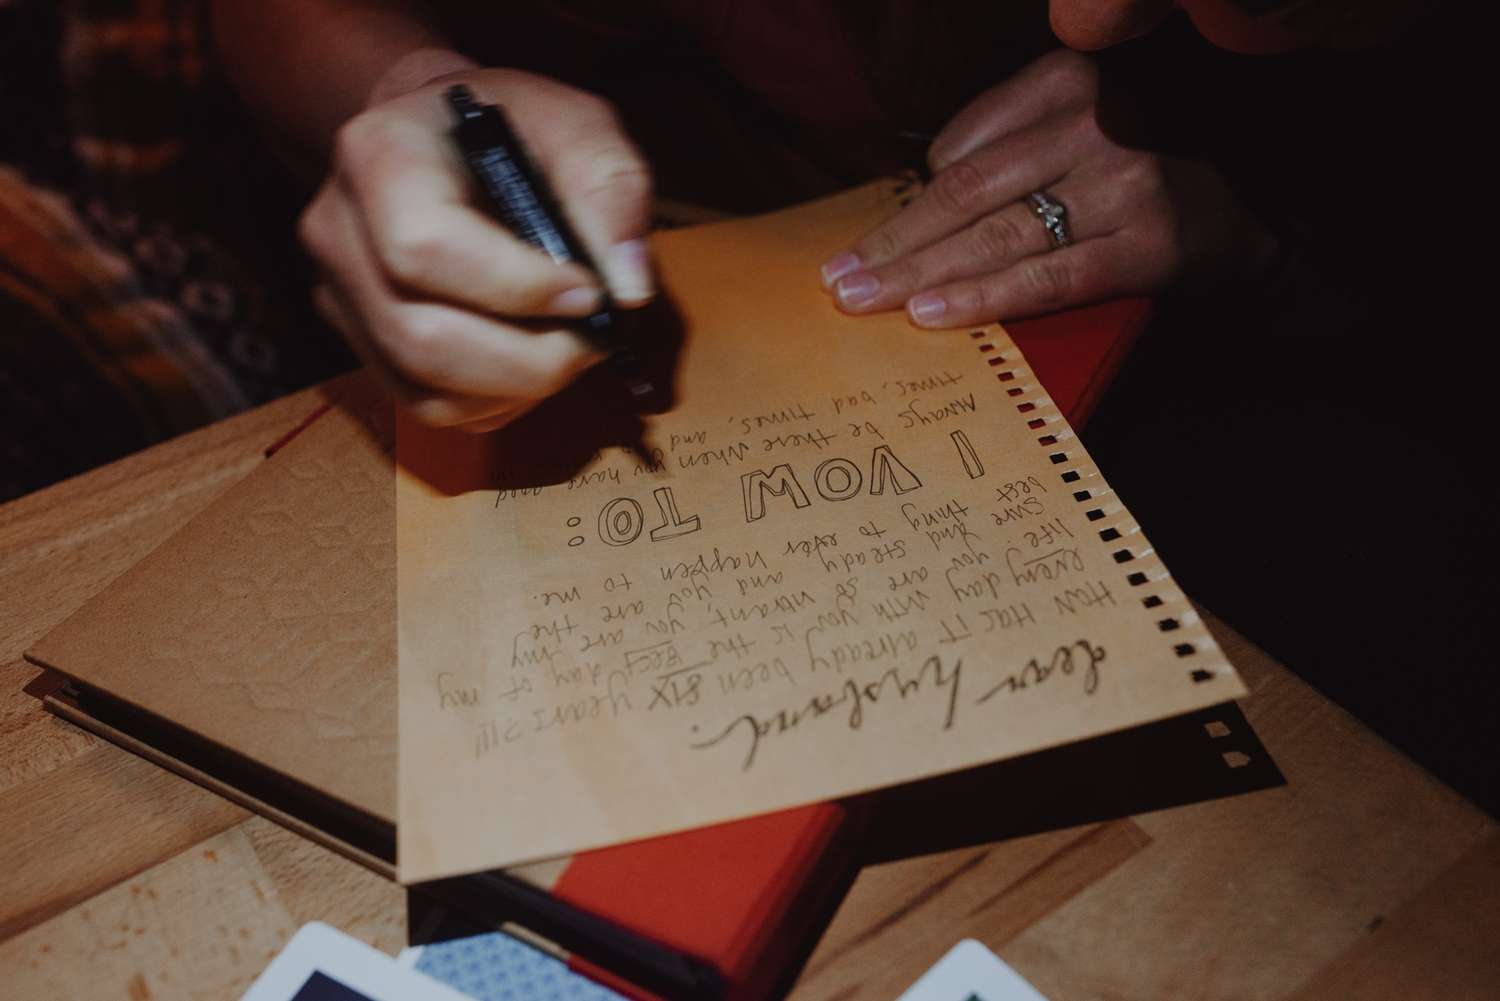 dear husband.
HOW HAS IT already been SIX years?!!!
everyday with you is the BEST day of my
life. you are so vibrant, you are my
sure and steady and you are the
best thing to ever happen to me.
I VOW TO:
Always be there when you have good
times, bad times, and